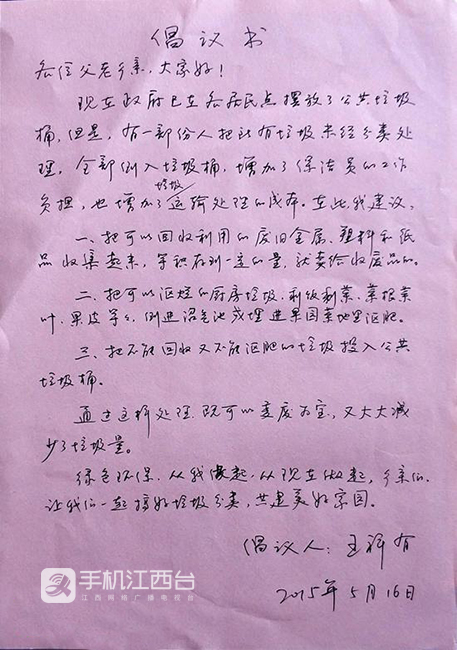 倡议书
各位父老乡亲,大家好!
现在政府已在各居民点摆放了公共垃圾
桶,但是,有一部份人把所有垃圾未经分类处
理,全部倒入垃圾桶,增加了保洁员的工作
负担,也增加了垃圾运输处理的成本。在此我建议:
一、把可以回收利用的废旧金属、塑料和纸
品收集起来,等积存到一定的量,就卖给收废品的。
二、把可以沤烂的厨房垃圾、剩饭剩菜、菜根菜
叶、果皮等等,倒进沼气池或埋进果园菜地里沤肥。
三、把不能回收又不能沤肥的垃圾投入公共
垃圾桶。
通过这样处理,既可以变废为宝,又大大减
少了垃圾量。
绿色环保,从我做起,从现在做起,乡亲们,
让我们一起搞好垃圾分类,共建美好家园。
倡议人:王科有
2015年5月16日
手机江西台
江西网络广播电视台